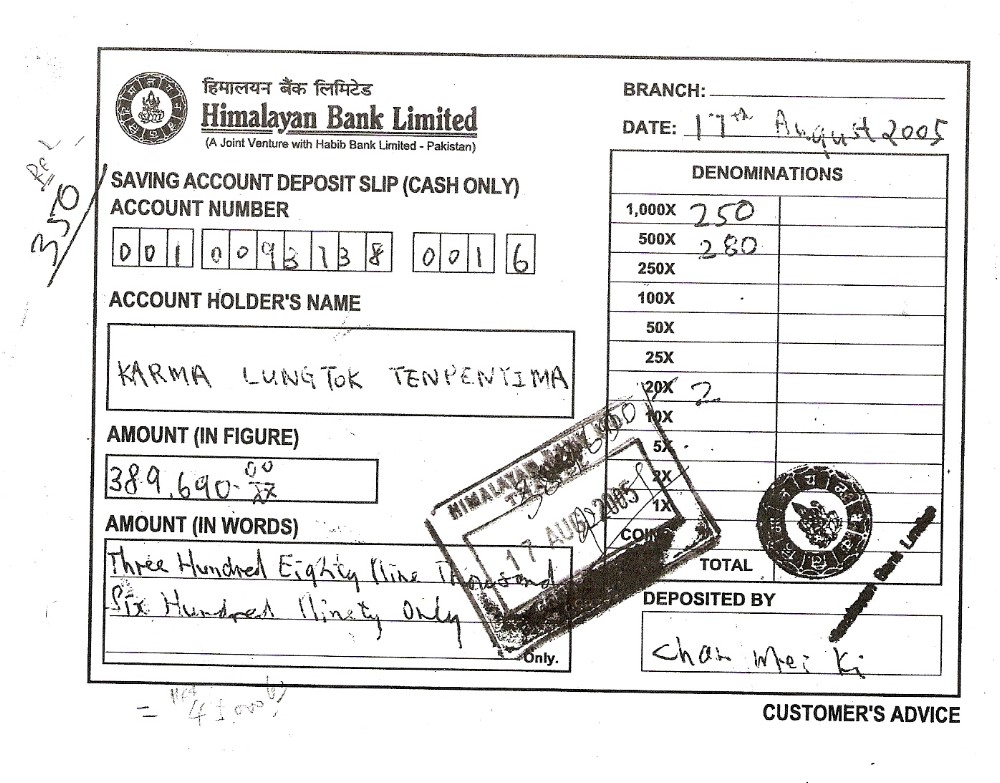 हिमालयन बैंक लिमिटेड
Himalayan Bank Limited
(A Joint Venture with Habib Bank Limited - Pakistan)
BRANCH:
DATE: 17th August 2005
SAVING ACCOUNT DEPOSIT SLIP (CASH ONLY)
ACCOUNT NUMBER
001 0093738 001 6
350
ACCOUNT HOLDER'S NAME
KARMA LUNGTOK TENPENYIMA
AMOUNT (IN FIGURE)
389,690.00
AMOUNT (IN WORDS)
Three Hundred Eighty Nine Thousand
Six Hundred Ninety Only
Only.
DENOMINATIONS
1,000X 250
500X 280
250X
100X
50X
25X
20X 2
10X
5X
2X
1X
COINS
TOTAL
HIMALAYAN BANK
17 AUG 2005
DEPOSITED BY
Himalayan Bank Limited
Chan Mei Ki
CUSTOMER'S ADVICE